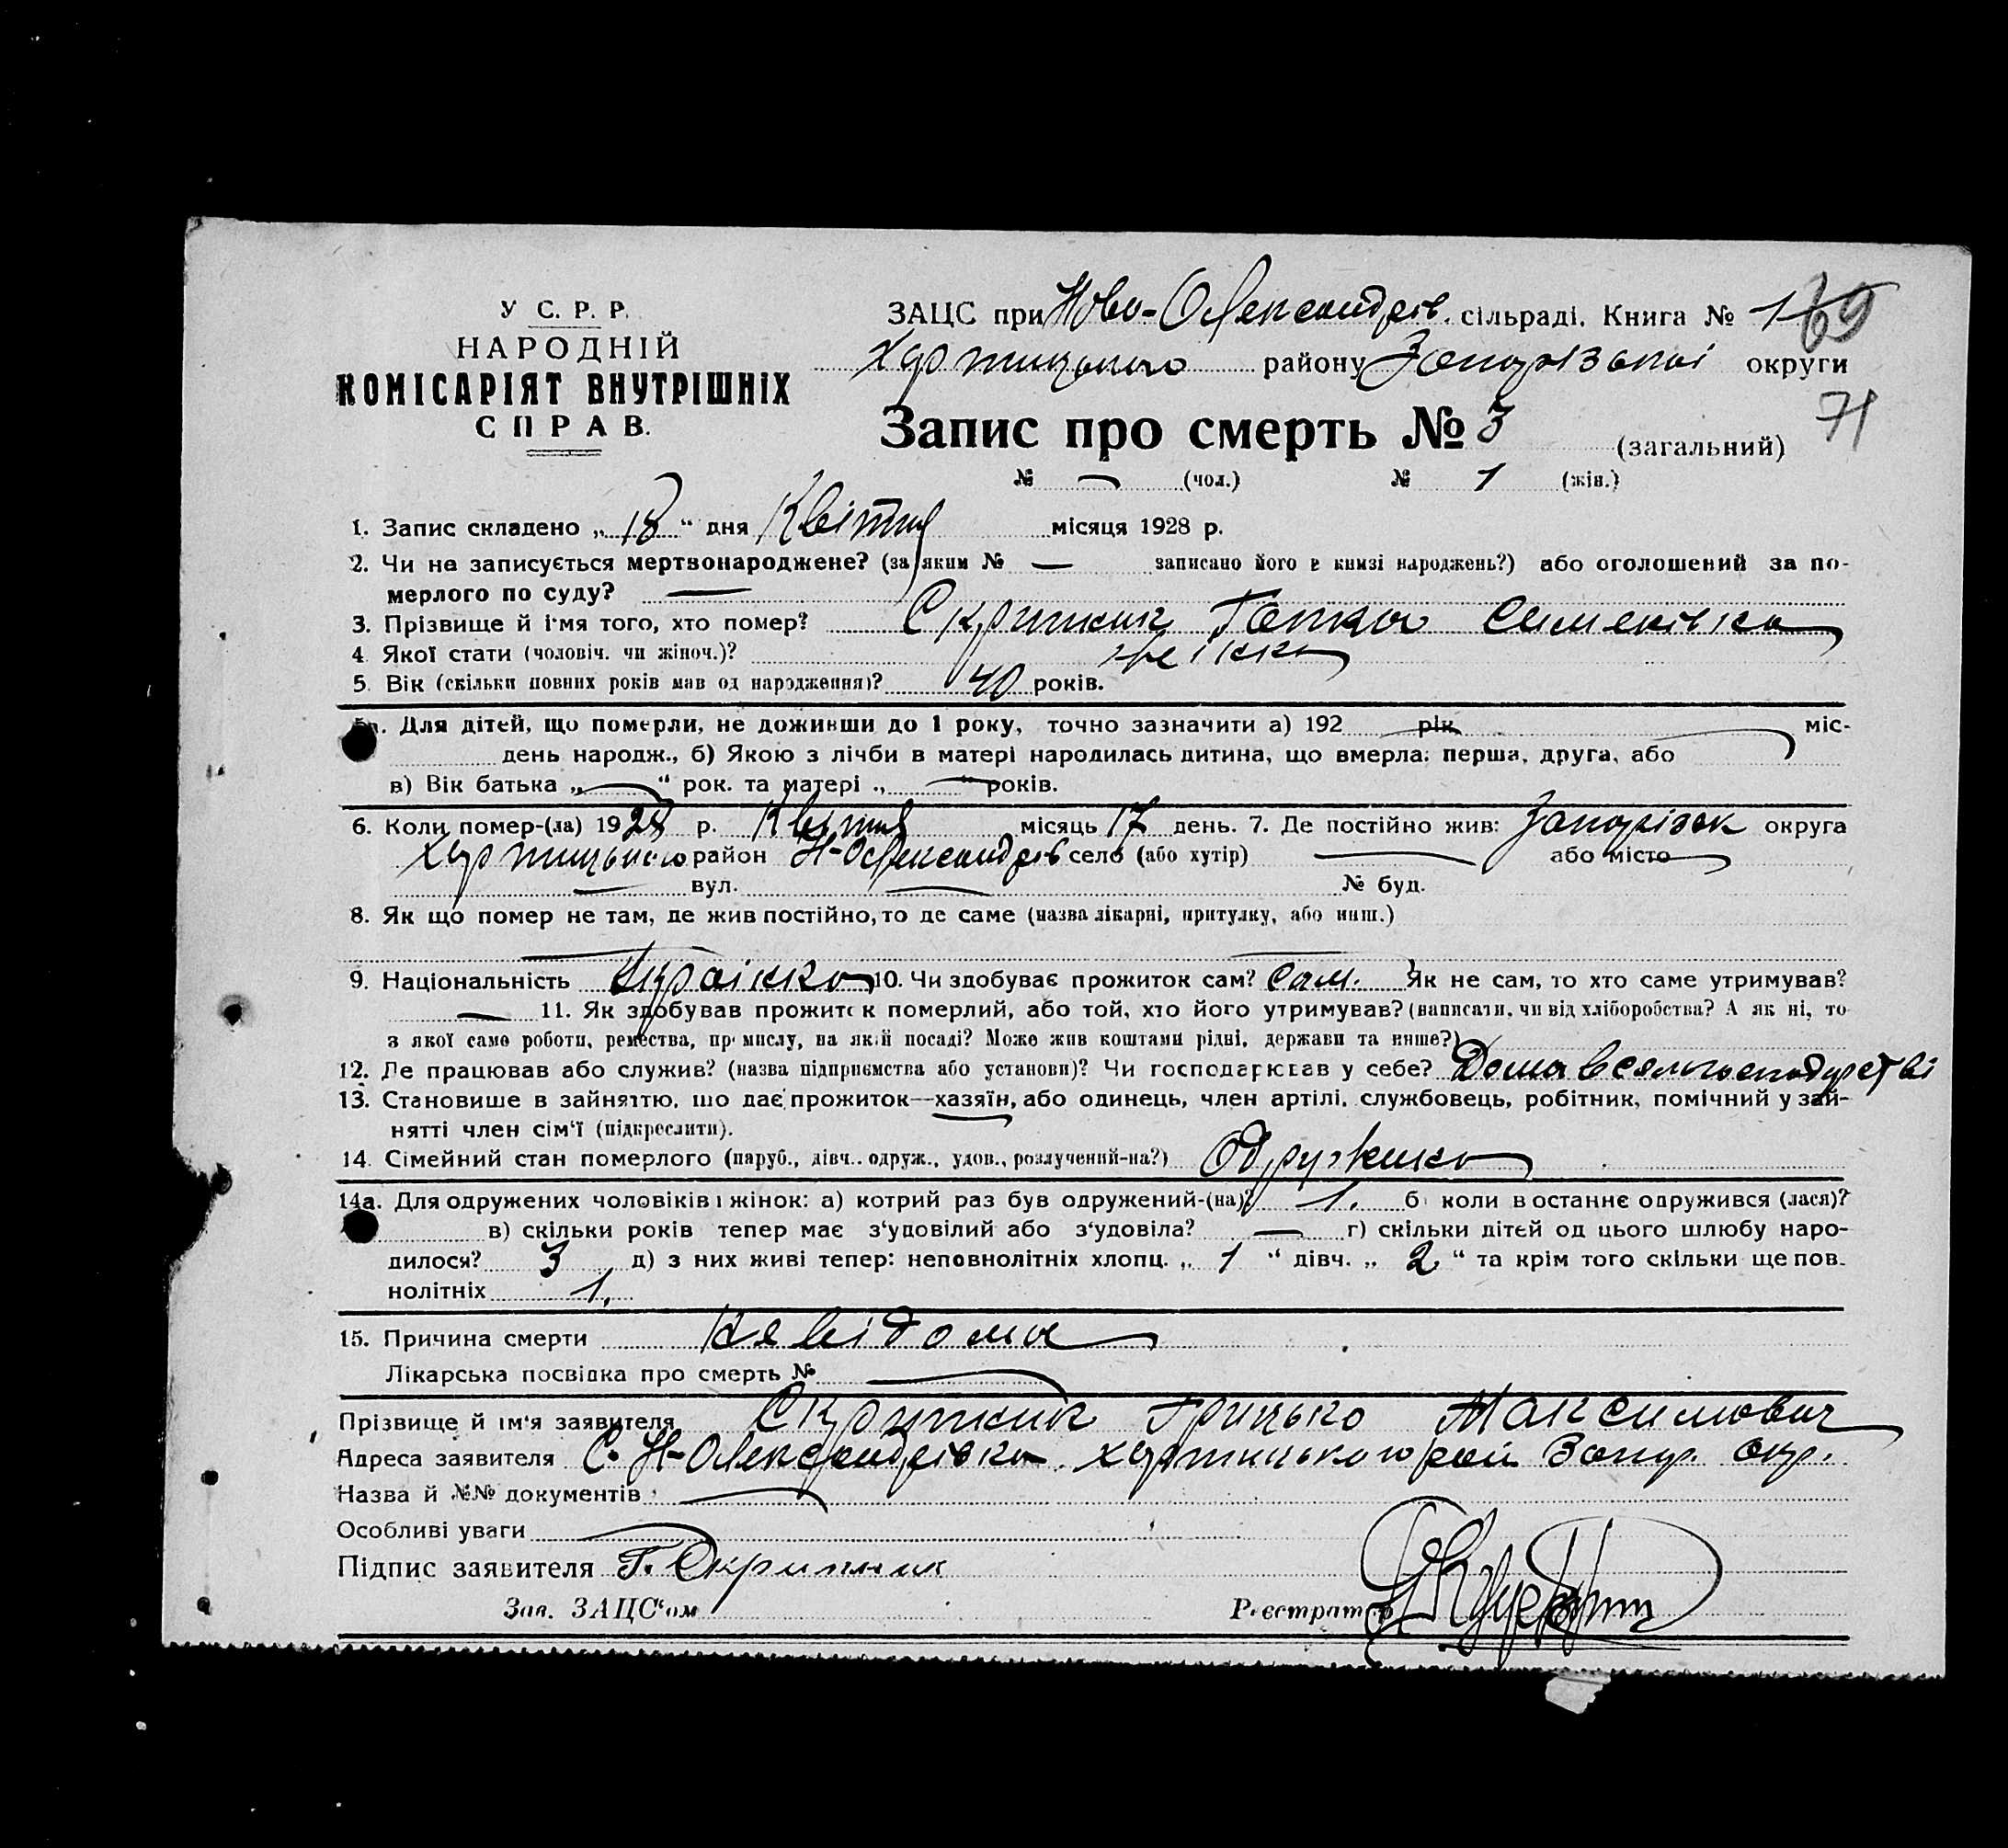 У С. Р. Р.
НАРОДНІЙ
КОМІСАРІЯТ ВНУТРІШНІХ
СПРАВ.
ЗАЦС при Ново-Олександрів. сільраді. Книга № 1 69
Хортицького району Запорізької округи
71
Запис про смерть № 3 (загальний)
№ — (чол.) № 1 (жін.)
1. Запис складено „18“ дня Квітня місяця 1928 р.
2. Чи не записується мертвонароджене? (за яким № — записано його в книзі народжень?) або оголошений за по-
мерлого по суду? —
3. Прізвище й імя того, хто помер? Скрипник Гапка Семенівна
4. Якої стати (чоловіч. чи жіноч.)? жінка
5. Вік (скільки повних років мав од народження)? 40 років.
5а. Для дітей, що померли, не доживши до 1 року, точно зазначити а) 192 рік міс-
день народж., б) Якою з лічби в матері народилась дитина, що вмерла: перша, друга, або
в) Вік батька „—“ рок. та матері „—“ років.
6. Коли помер-(ла) 1928 р. Квітня місяць 17 день. 7. Де постійно жив: Запорізьк округа
Хортицького район Н-Олександрів село (або хутір) — або місто —
— вул. — № буд.
8. Як що помер не там, де жив постійно, то де саме (назва лікарні, притулку, або инш.)
—
9. Національність Українка 10. Чи здобуває прожиток сам? Сам. Як не сам, то хто саме утримував?
— 11. Як здобував прожиток померлий, або той, хто його утримував? (написати, чи від хліборобства? А як ні, то
з якої саме роботи, ремества, промислу, на якій посаді? Може жив коштами рідні, держави та инше?)
12. Де працював або служив? (назва підприємства або установи)? Чи господарював у себе? Дома в сельгосподарстві
13. Становише в зайняттю, що дає прожиток—хазяїн, або одинець, член артілі, службовець, робітник, помічний у зай-
нятті член сім'ї (підкреслити).
14. Сімейний стан померлого (паруб., дівч.. одруж., удов., розлучений-на?) Одружена
14а. Для одружених чоловіків і жінок: а) котрий раз був одружений-(на)? 1. б) коли в останнє одружився (лася)?
в) скільки років тепер має з'удовілий або з'удовіла? — г) скільки дітей од цього шлюбу наро-
дилося? 3 д) з них живі тепер: неповнолітніх хлопц. „ 1 “ дівч. „ 2 “ та крім того скільки ще пов-
нолітніх 1.
15. Причина смерти Невідома
Лікарська посвідка про смерть № —
Прізвище й ім'я заявителя Скрипник Грицько Максимович
Адреса заявителя С. Н-Олександрівка. Хортицького рай Запор. окр.
Назва й №№ документів —
Особливі уваги —
Підпис заявителя Г. Скрипник
Зав. ЗАЦС'ом Реєстратор